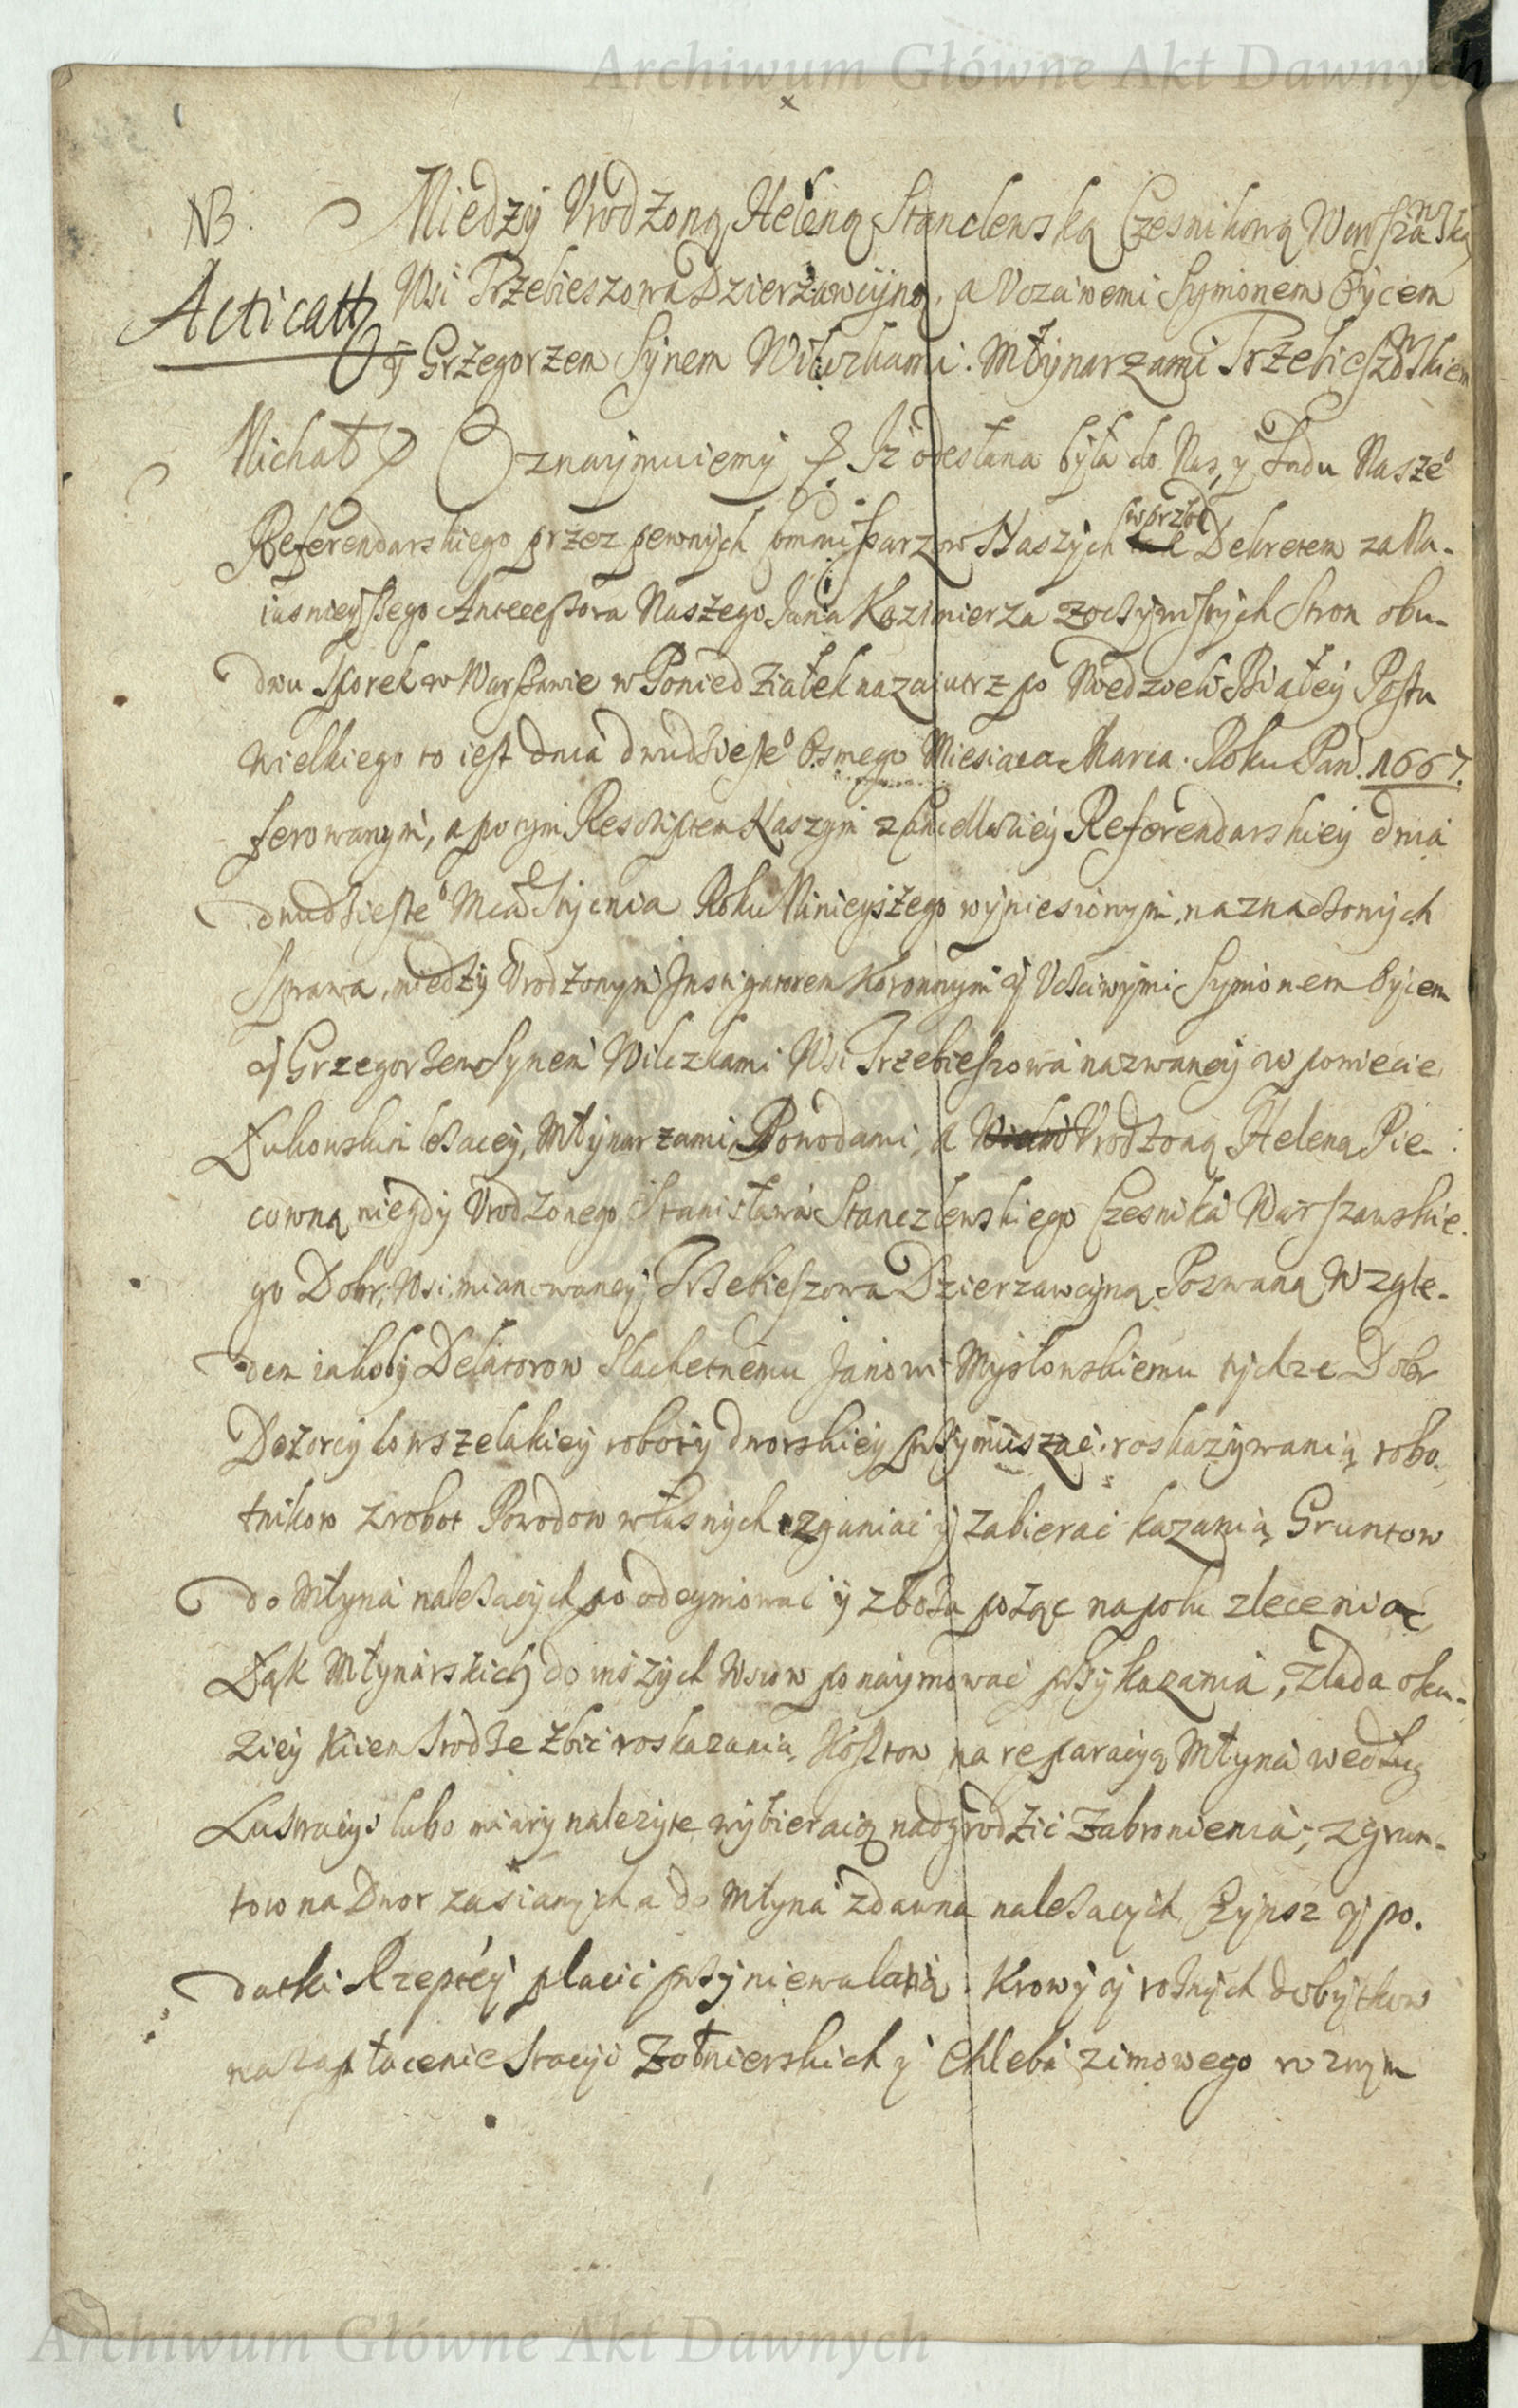 Archiwum Główne Akt Dawnych
NB. Miedzy Vrodzoną Heleną Stanclewską Czesnikową Warszawską
Wsi Trzebieszowa Dzierżawcyną, a Vczciwemi Symonem Oycem
Acticatt
y Grzegorzem Synem Wilczkami. Młynarzami Trzebieszowskiemi
Michał Oznaymuiemy Iż odesłana była do Nas, y Sądu Nasze͠o
Referendarskiego przez pewnych Commissarzow Naszych wprzod Dekretem za Na-
iasnieyszego Antecessora Naszego Jana Kazimierza zoczywistych Stron obu-
dwu Sporek w Warszawie w Poniedziałek nazaiutrz po Niedzieli Białey Postu
wielkiego to iest dnia dwudzieste͠o Osmego Miesiaca Marca. Roku Pań. 1667.
ferowanym, a potym Rescriptem Naszym z Cancellariey Referendarskiey dnia
dwudzieste͠o Mca Stycnia Roku Ninieyszego wyniesionym naznaczonych
Sprawa, miedzy Vrodzonym Instigatorem Koronnym y Vcciwymi Symonem Oycem
y Grzegorzem Synem Wilczkami Wsi Trzebieszowa nazwaney w powiecie
Łukowskim lezacey, Młynarzami Powodami, a Vrodzoną Heleną Pie-
cowną niegdy Vrodzonego Stanisława Stanczlewskiego Czesnika Warszawskie-
go Dobr, Wsi mianowaney Trzebieszowa Dzierzawcyną Pozwaną Wzglę-
dem iakoby Delatorow Slachetnemu Janowi Mysłowskiemu tychze Dobr
Dozorcy do wszelakiey roboty dworskiey przymuszac roskazywania, robo-
tnikow z robot Powodow własnych zganiac y zabierac kazania, Gruntow
do Młyna nalezacych poodeymowac y zboza pożąc na polu zlecenia,
Łąk Młynarskich do inszych Wsiow ponaymowac przykazania, z lada oka-
ziey kiiem srodze zbic roskazania, Kosztow na reparacyą Młyna według
Lustracyi lubo miary nalezyte wybieraią nadgrodzic zabronienia, z grun-
tow na Dwor zasianych a do Młyna zdawna nalezacych Czynsz y po-
datki Rzeptey placic przyniewalania. Krowy y roznych dobytkow
na zapłacenie Stacyi Zołnierskich y Chleba zimowego
Archiwum Główne Akt Dawnych